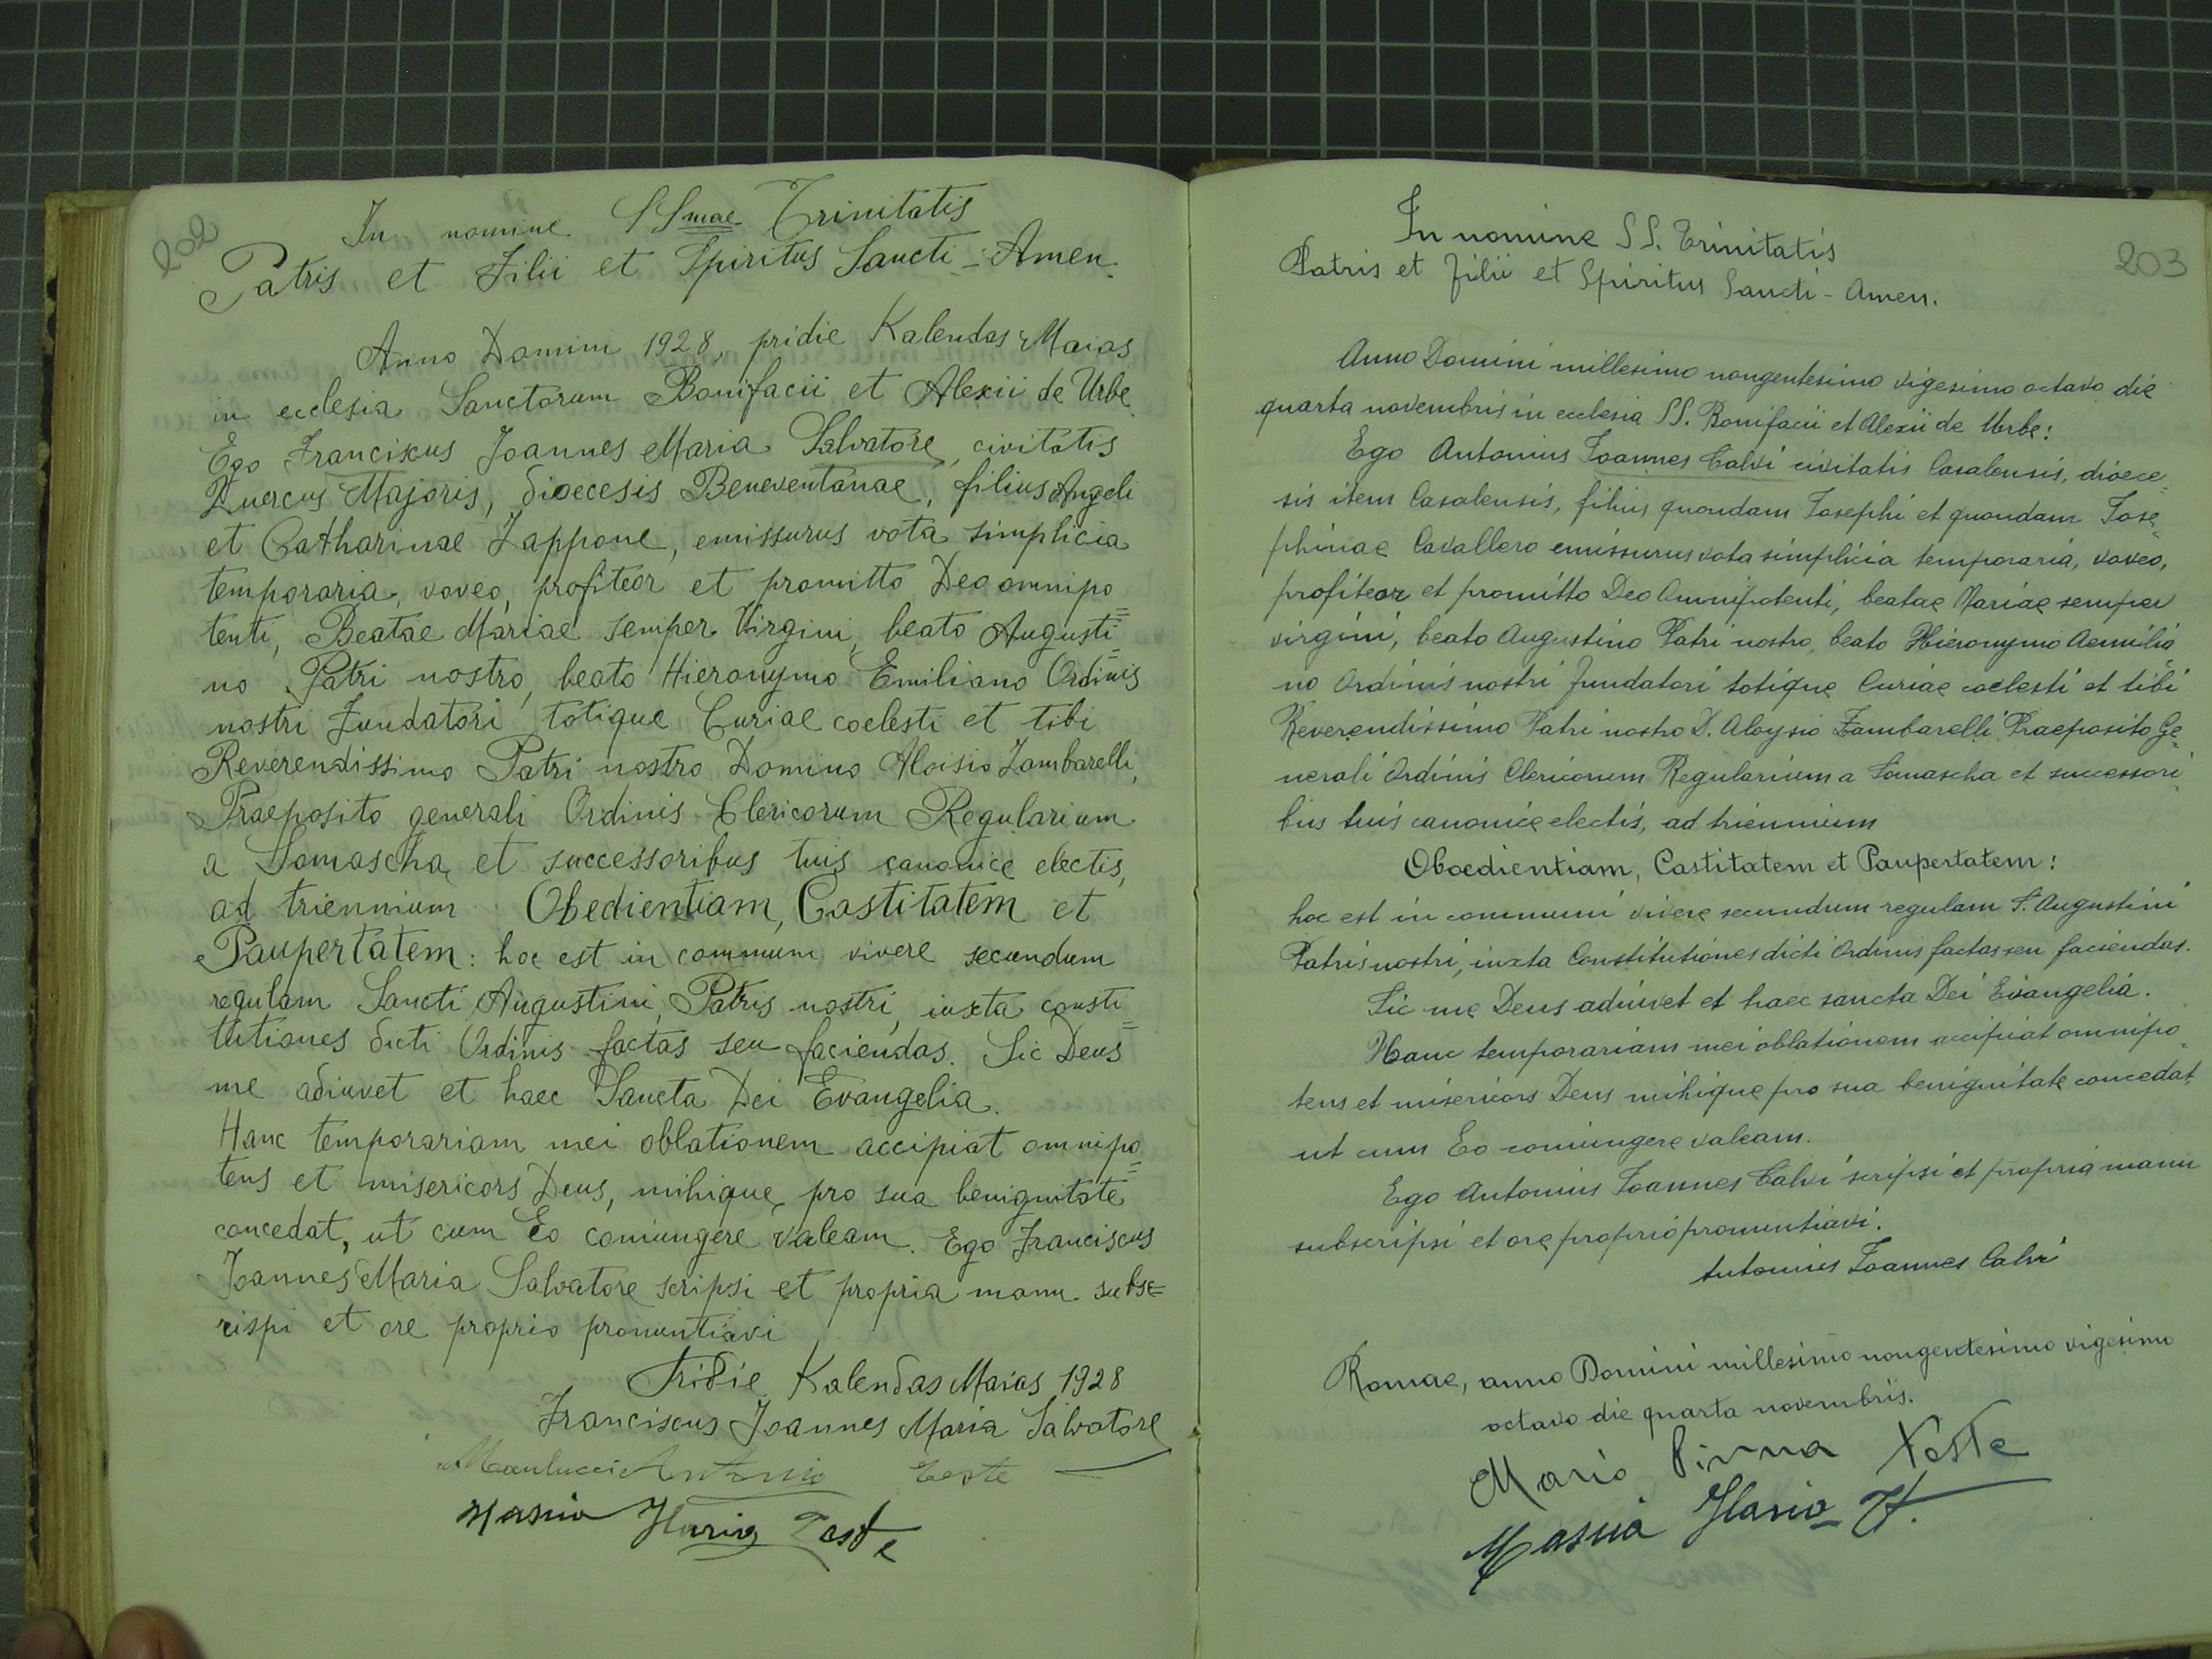 202
In nomine SSmae Trinitatis
Patris et Filii et Spiritus Sancti - Amen.
Anno Domini 1928, pridie Kalendas Maias
in ecclesia Sanctorum Bonifacii et Alexii de Urbe
Ego Franciscus Joannes Maria Salvatore, civitatis
Quercus Majoris, dioecesis Beneventanae, filius Angeli
et Catharinae Zappone, emissurus vota simplicia
temporaria, voveo, profiteor et promitto Deo omnipo=
tenti, Beatae Mariae semper Virgini, beato Augusti=
no Patri nostro, beato Hieronymo Emiliano Ordinis
nostri Fundatori totique Curiae coelesti et tibi
Reverendissimo Patri nostro Domino Aloisio Zambarelli,
Praeposito generali Ordinis Clericorum Regularium
a Somascha et successoribus tuis canonice electis,
ad triennium Obedientiam, Castitatem et
Paupertatem: hoc est in communi vivere secundum
regulam Sancti Augustini, Patris nostri, iuxta consti=
tutiones dicti Ordinis factas seu faciendas. Sic Deus
me adiuvet et haec Sancta Dei Evangelia.
Hanc temporariam mei oblationem accipiat omnipo=
tens et misericors Deus, mihique pro sua benignitate
concedat, ut cum Eo coniungere valeam. Ego Franciscus
Joannes Maria Salvatore scripsi et propria manu subsc=
rispi et ore proprio pronuntiavi
Pridie Kalendas Maias 1928
Franciscus Joannes Maria Salvatore
Manlucci Antonio teste
Massia Ilario Teste
203
In nomine SS. Trinitatis
Patris et Filii et Spiritus Sancti - Amen.
Anno Domini millesimo nongentesimo vigesimo octavo die
quarta novembris in ecclesia SS. Bonifacii et Alexii de Urbe:
Ego Antonius Ioannes Calvi civitatis Casalensis, dioece=
sis item Casalensis, filius quondam Iosephi et quondam Iose=
phinae Cavallero emissurus vota simplicia temporaria, voveo,
profiteor et promitto Deo Omnipotenti, beatae Mariae semper
virgini, beato Augustino Patri nostro, beato Hieronymo Aemilia=
no Ordinis nostri Fundatori totique Curiae coelesti et tibi
Reverendissimo Patri nostro D. Aloysio Zambarelli Praeposito Ge=
nerali Ordinis Clericorum Regularium a Somascha et successori=
bus tuis canonice electis, ad triennium
Oboedientiam, Castitatem et Paupertatem:
hoc est in communi vivere secundum regulam S. Augustini
Patris nostri, iuxta Constitutiones dicti Ordinis factas seu faciendas.
Sic me Deus adiuvet et haec sancta Dei Evangelia.
Hanc temporariam mei oblationem accipiat omnipo=
tens et misericors Deus mihique pro sua benignitate concedat,
ut cum Eo coniungere valeam.
Ego Antonius Ioannes Calvi scripsi et propria manu
subscripsi et ore proprio pronuntiavi.
Antonius Ioannes Calvi
Romae, anno Domini millesimo nongentesimo vigesimo
octavo die quarta novembris.
Mario Pinna Teste
Massia Ilario T.